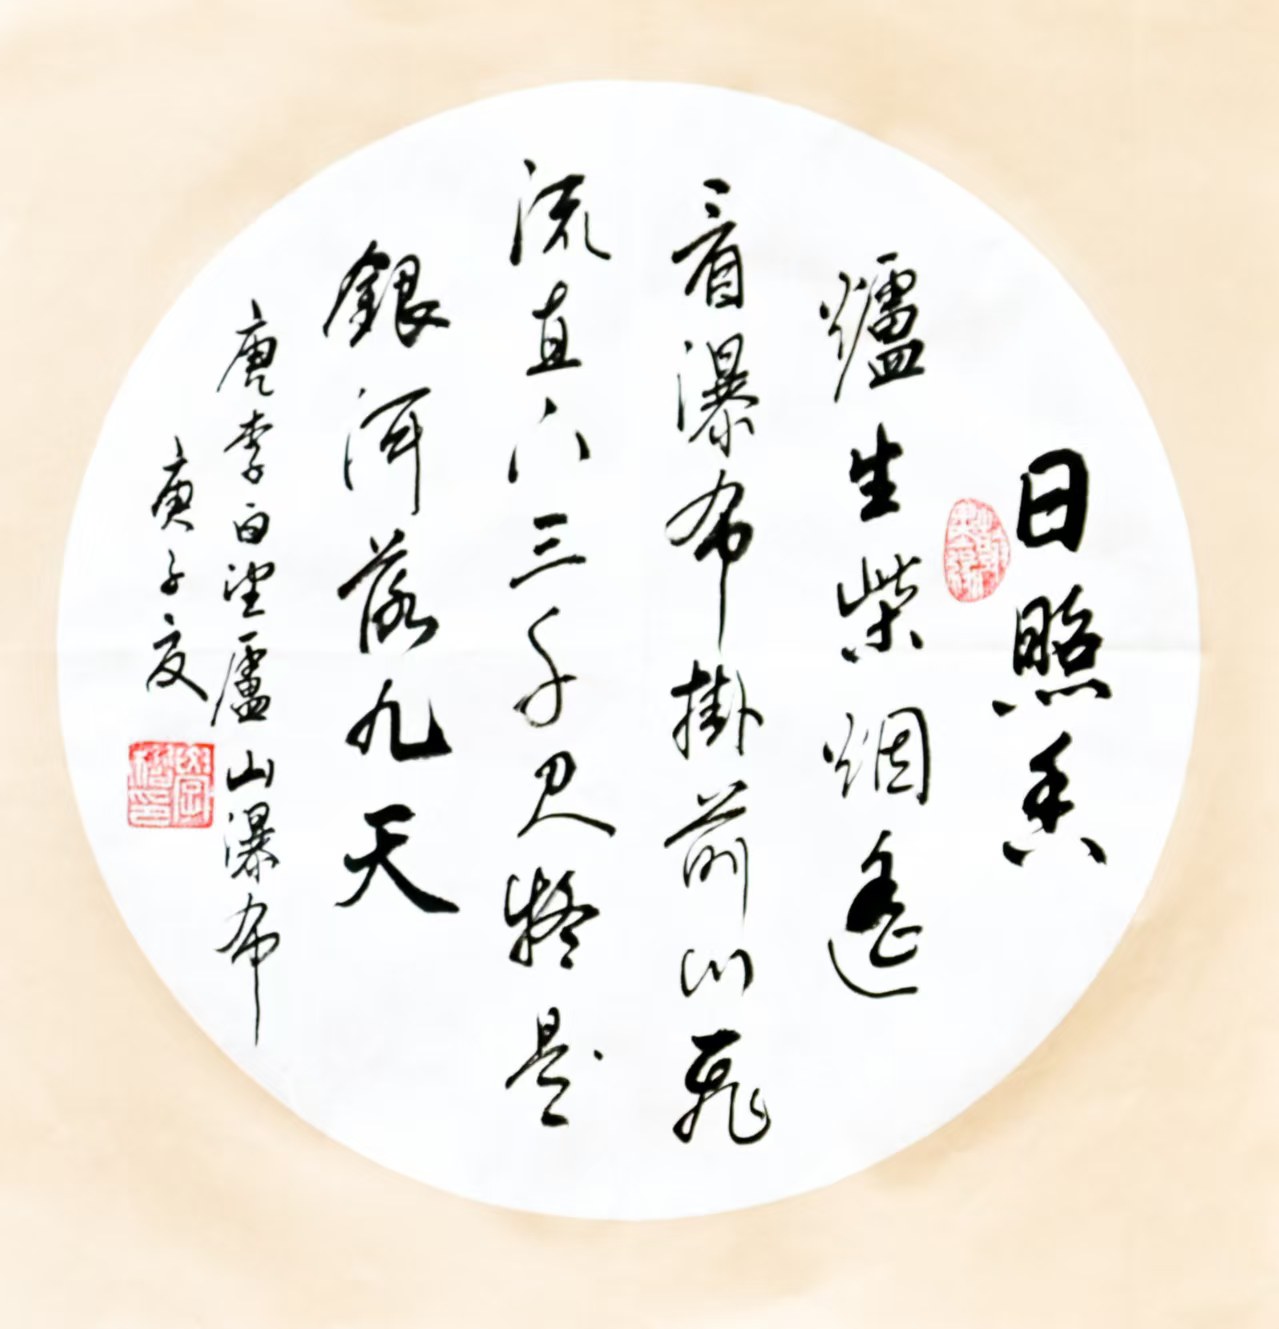 日照香
爐生紫烟遙
看瀑布掛前川飛
流直下三千尺疑是
銀河落九天
唐李白望廬山瀑布
庚子夏